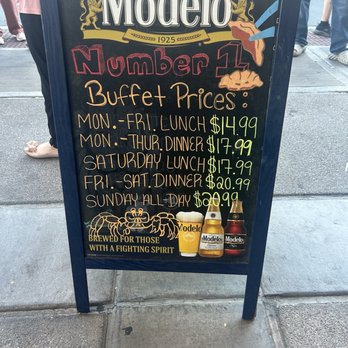 Modelo
1925
Number 1
Buffet Prices:
MON.-FRI. LUNCH $14.99
MON.-THUR. DINNER $17.99
SATURDAY LUNCH $17.99
FRI.-SAT. DINNER $20.99
SUNDAY ALL-DAY $20.99
BREWED FOR THOSE
WITH A FIGHTING SPIRIT
Modelo
Modelo
Modelo